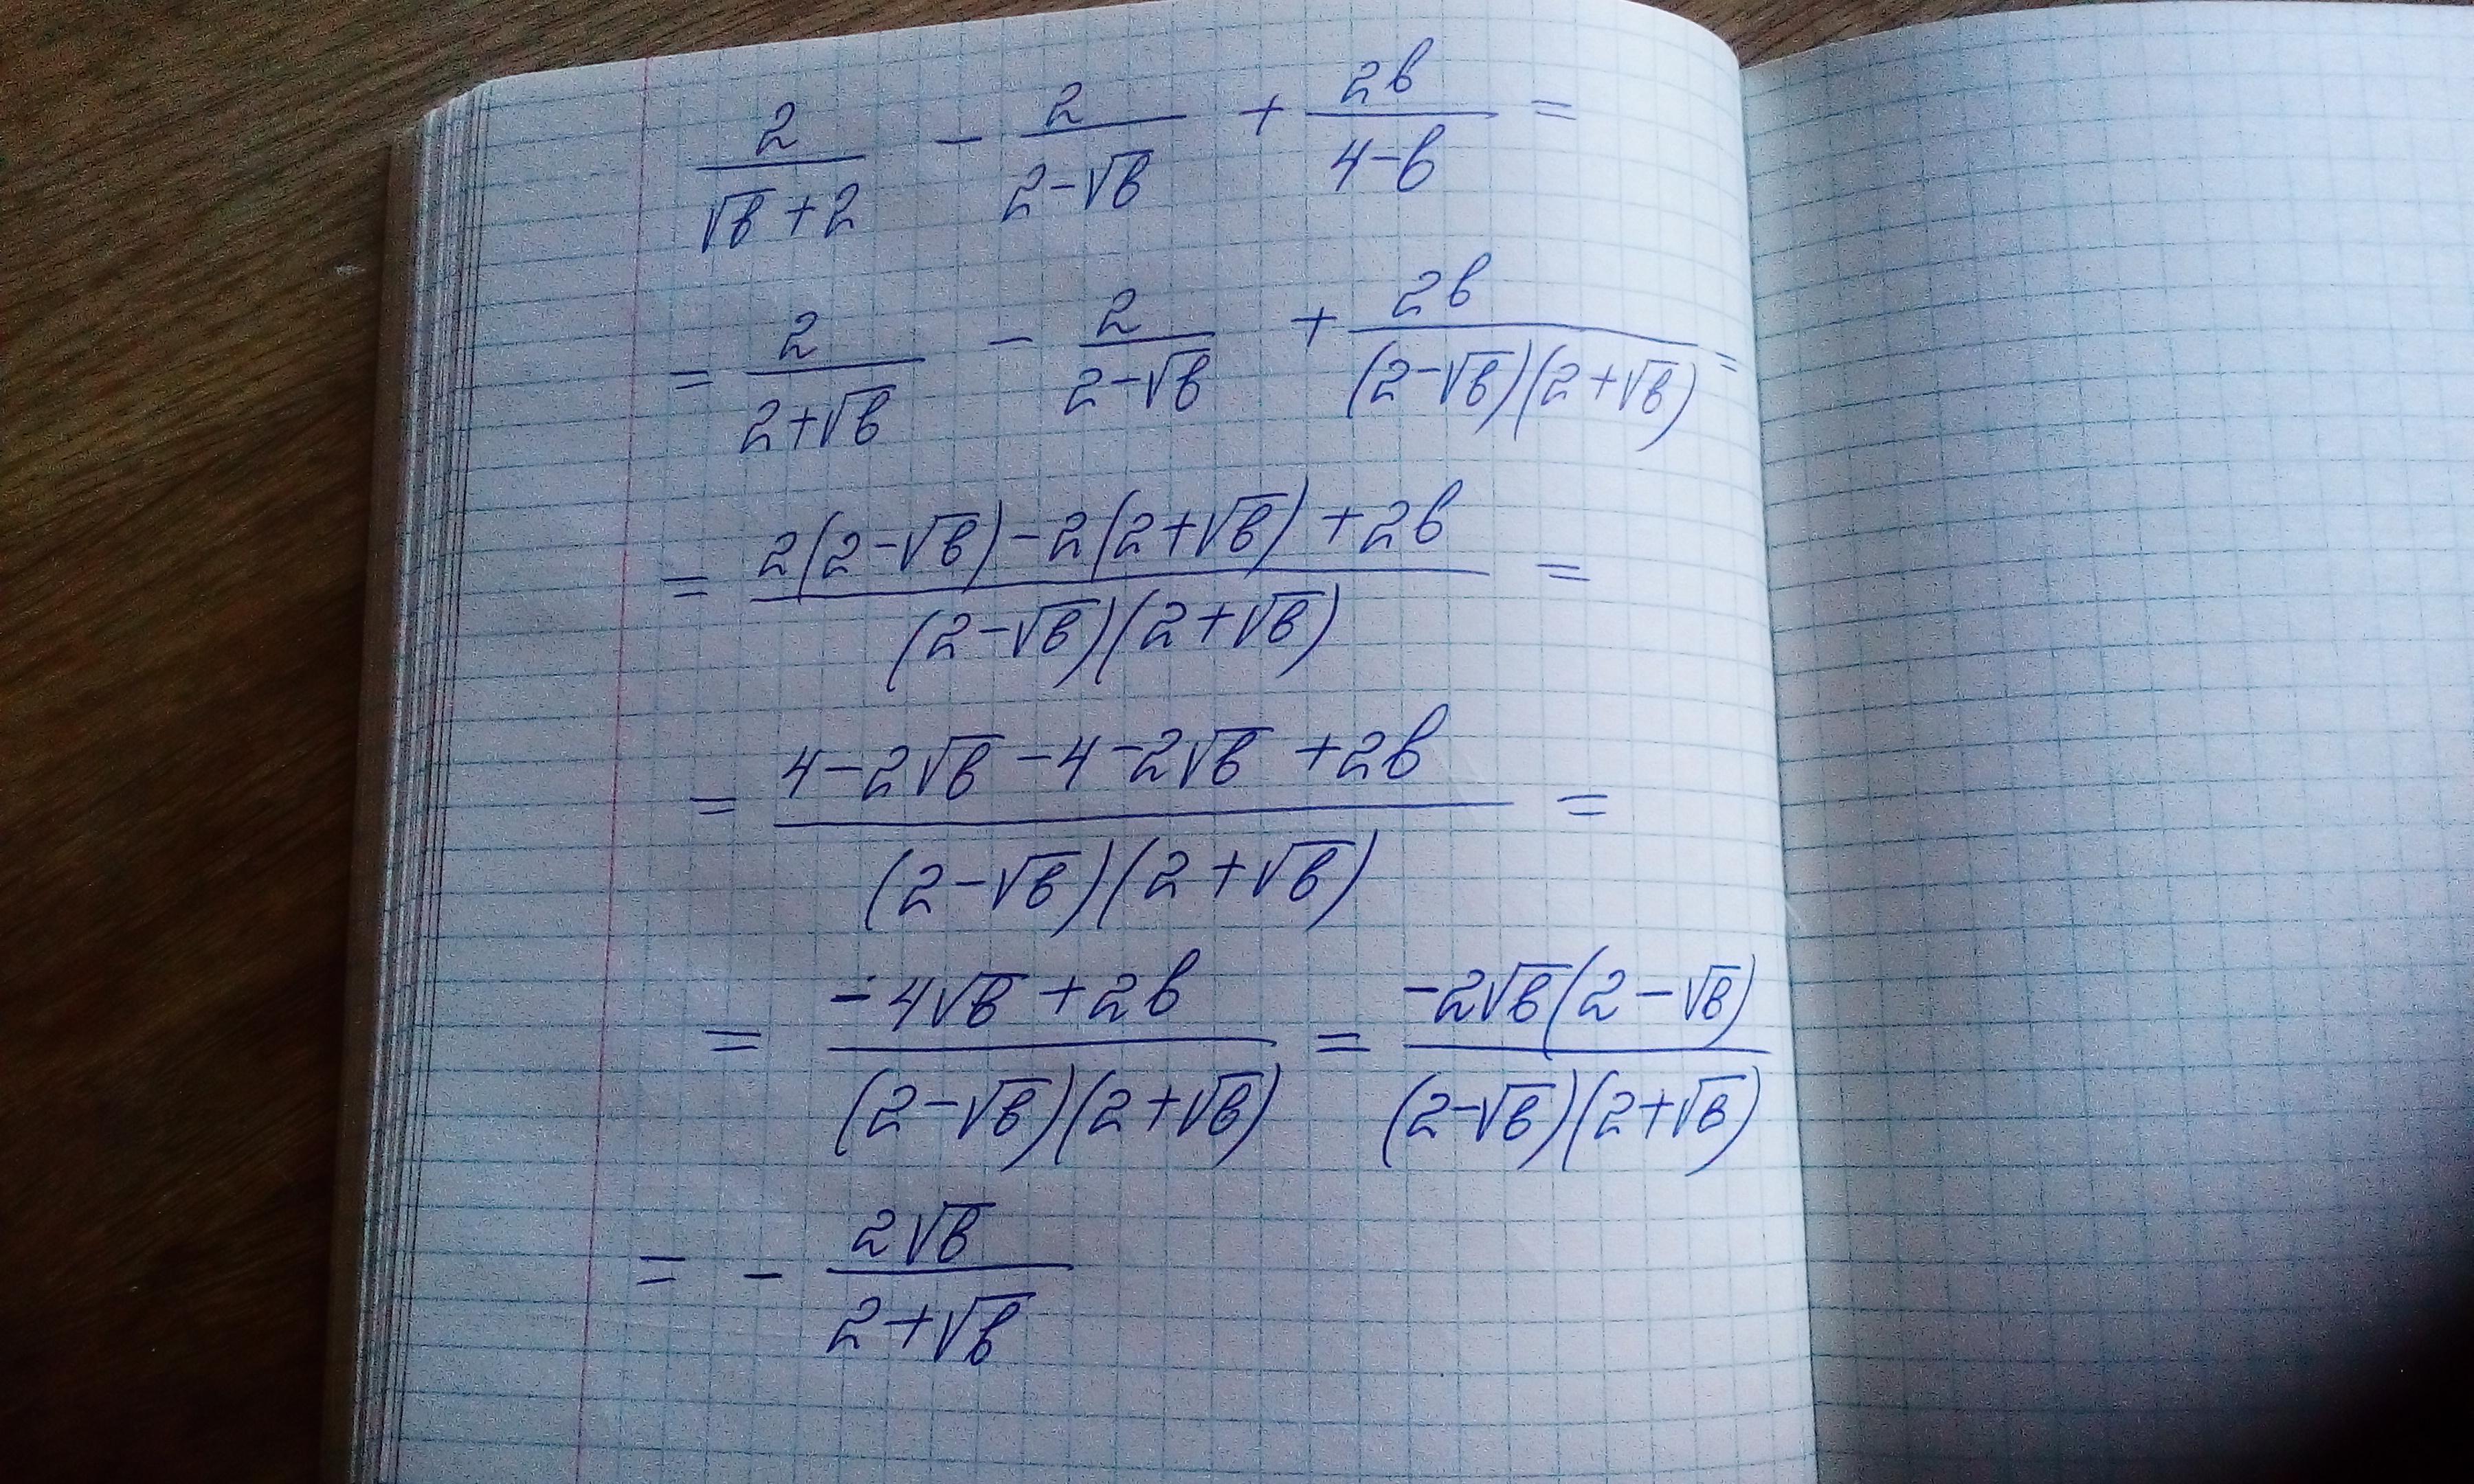 2/(√b+2) - 2/(2-√b) + 2b/(4-b) =
= 2/(2+√b) - 2/(2-√b) + 2b/((2-√b)(2+√b)) =
= (2(2-√b)-2(2+√b)+2b)/((2-√b)(2+√b)) =
= (4-2√b-4-2√b+2b)/((2-√b)(2+√b)) =
= (-4√b+2b)/((2-√b)(2+√b)) = (-2√b(2-√b))/((2-√b)(2+√b))
= - 2√b/(2+√b)